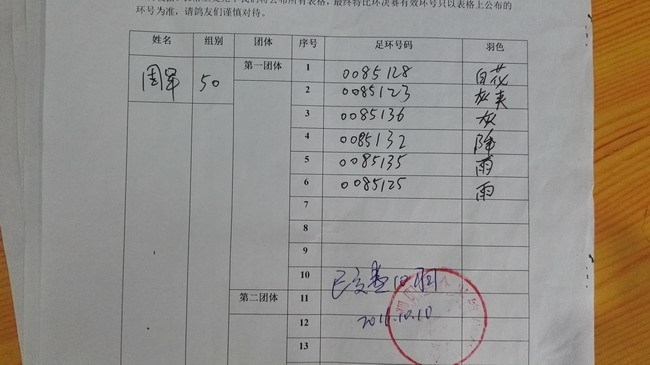 最终特比环决赛有效环号只以表格上公布的
环号为准，请鸽友们谨慎对待。
姓名 组别 团体 序号 足环号码 羽色
周军 50 第一团体 1 0085128 白花
2 0085123 灰夹
3 0085136 灰
4 0085132 降
5 0085135 雨
6 0085125 雨
7
8
9
10
第二团体 11
12
13